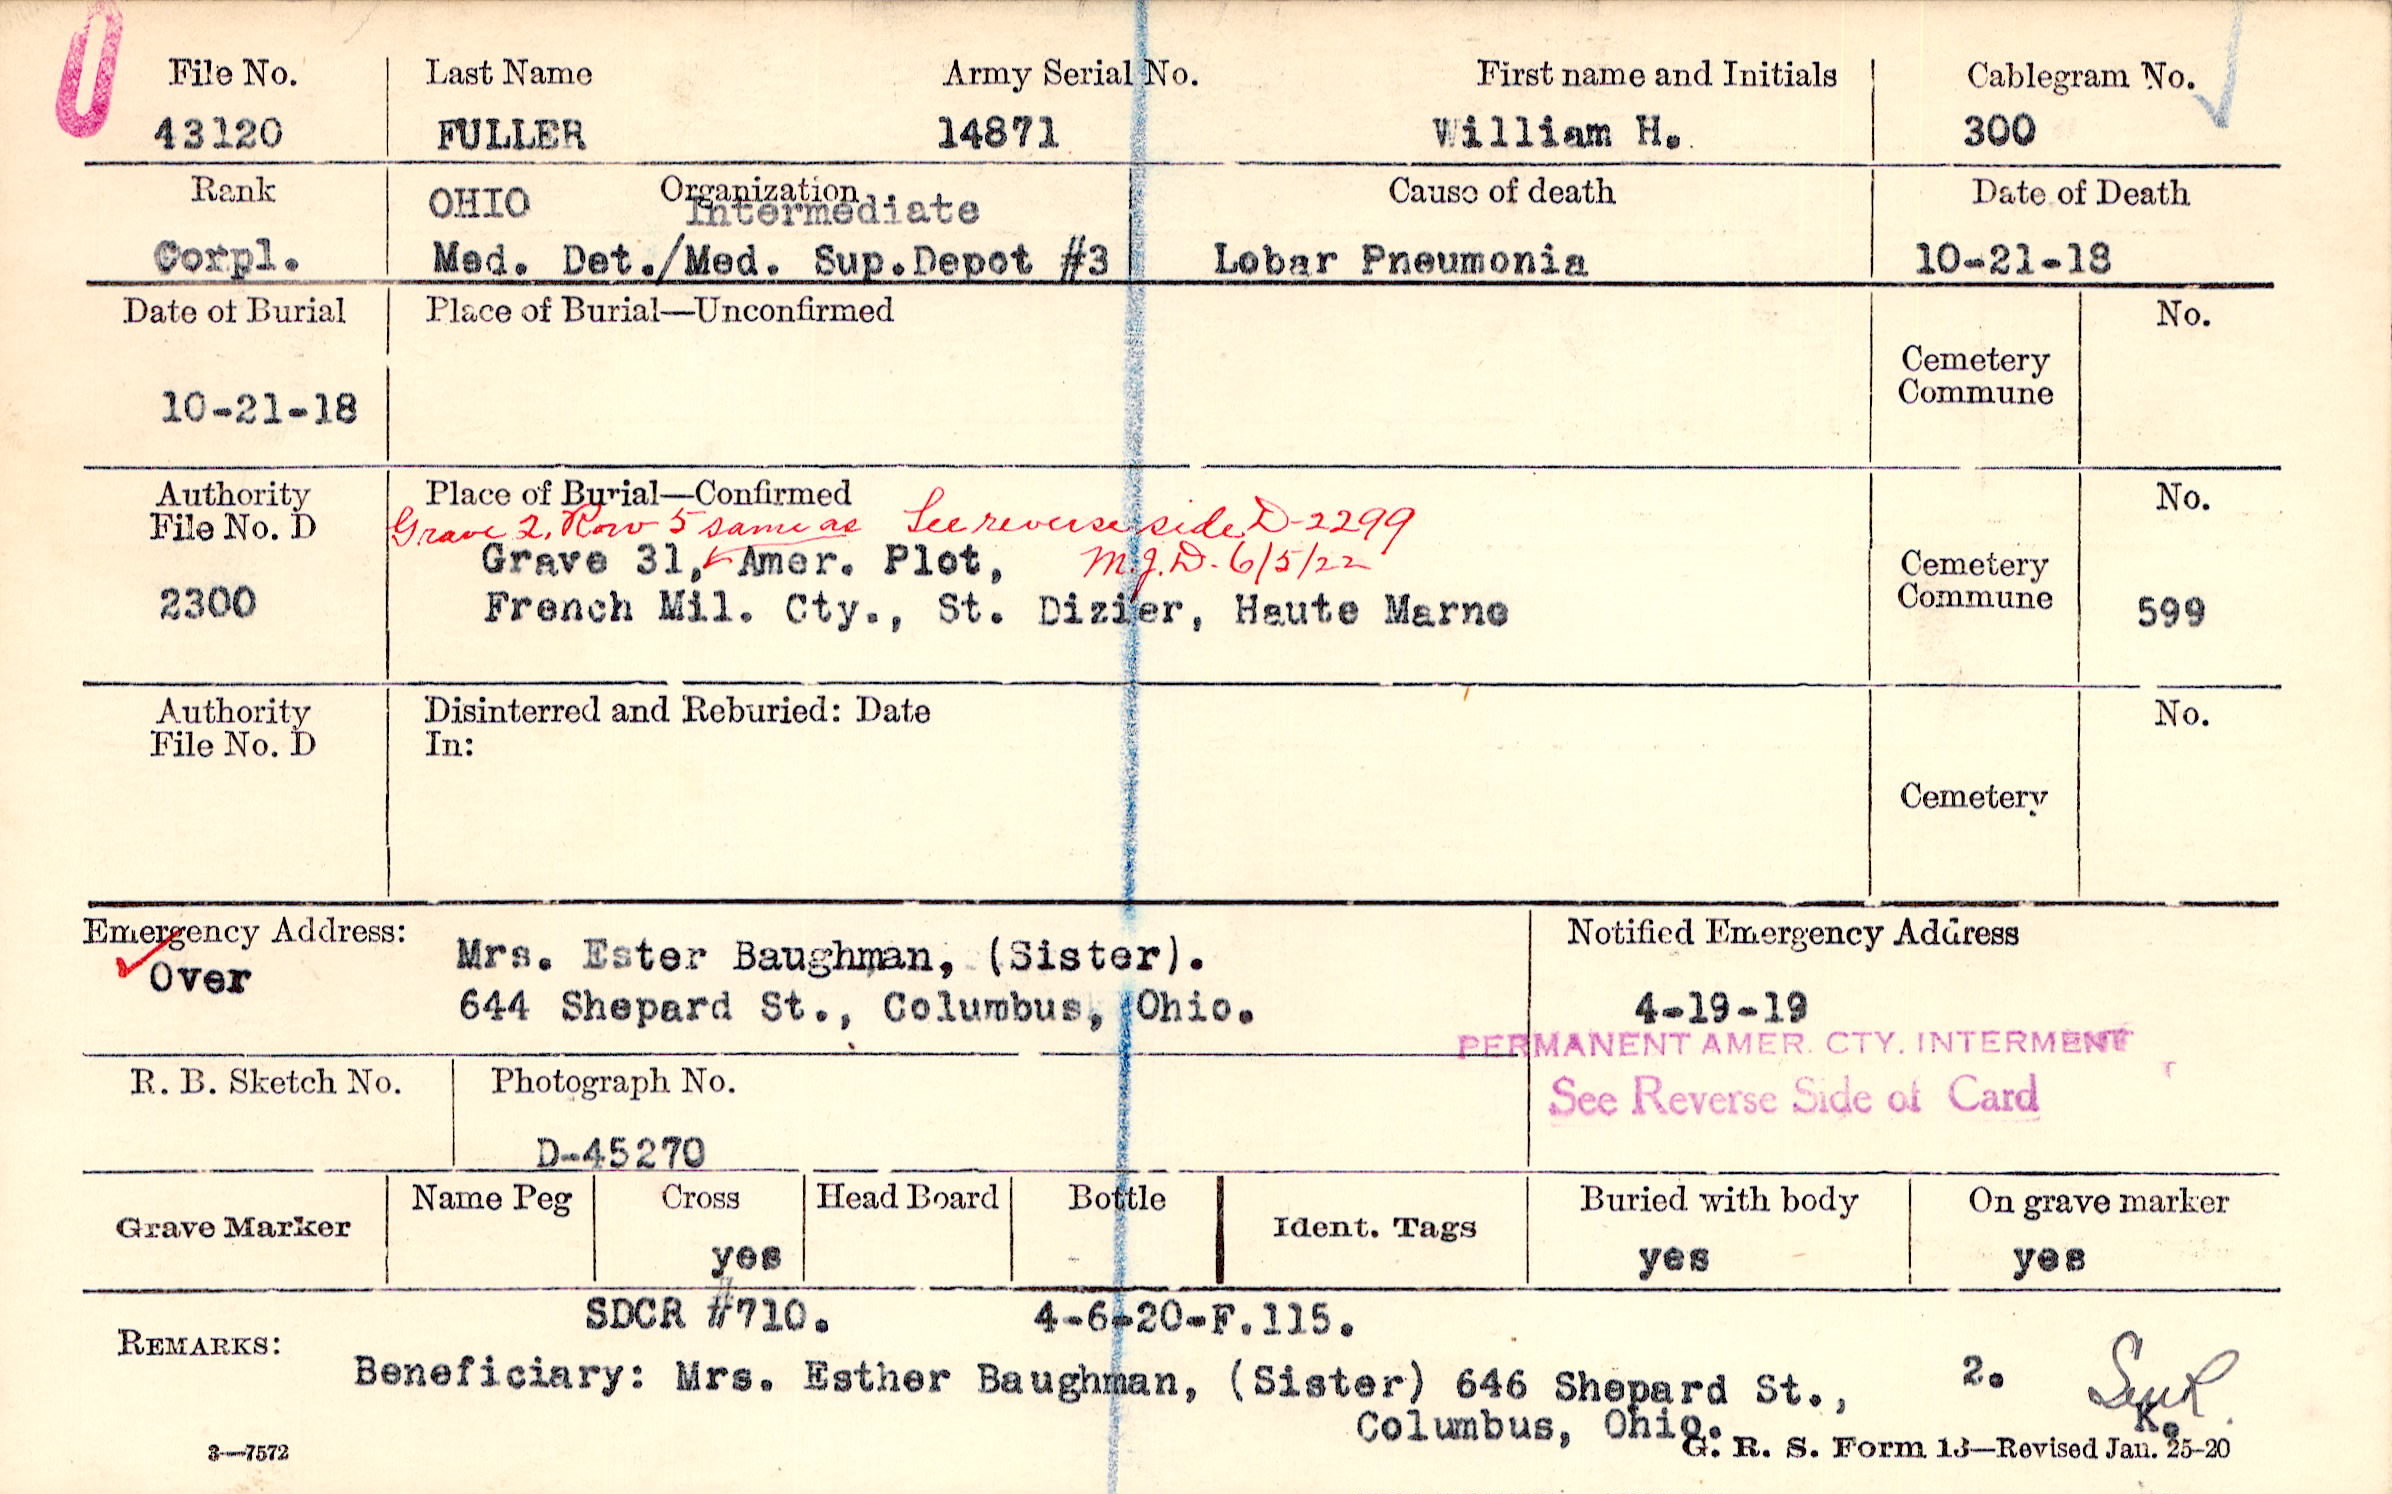 File No. Last Name Army Serial No. First name and Initials Cablegram No.
43120 FULLER 14871 William H. 300
Rank OHIO Organization Cause of death Date of Death
Intermediate
Corpl. Med. Det./Med. Sup.Depot #3 Lobar Pneumonia 10-21-18
Date of Burial Place of Burial—Unconfirmed No.
Cemetery
Commune
10-21-18
Authority Place of Burial—Confirmed No.
File No. D Grave 2, Row 5 same as See reverse side D-2299
Grave 31, Amer. Plot, M.J.D. 6/5/22 Cemetery
2300 French Mil. Cty., St. Dizier, Haute Marne Commune 599
Authority Disinterred and Reburied: Date No.
File No. D In:
Cemetery
Emergency Address: Mrs. Ester Baughman, (Sister). Notified Emergency Address
Over 644 Shepard St., Columbus, Ohio. 4-19-19
PERMANENT AMER. CTY. INTERMENT
R. B. Sketch No. Photograph No. See Reverse Side of Card
D-45270
Grave Marker Name Peg Cross Head Board Bottle Ident. Tags Buried with body On grave marker
yes yes yes
SDCR #710. 4-6-20-F.115.
REMARKS:
Beneficiary: Mrs. Esther Baughman, (Sister) 646 Shepard St., 2.
Columbus, Ohio. K.
3—7572 G. R. S. Form 13—Revised Jan. 25-20